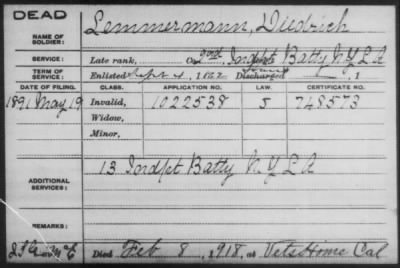 DEAD
NAME OF SOLDIER: Lemmermann, Diedrich
SERVICE: Late rank, Co 2nd Indpt Batty N.Y.L.A
TERM OF SERVICE: Enlisted Sept 4, 1862 Discharged , 1
DATE OF FILING. CLASS. APPLICATION NO. LAW. CERTIFICATE NO.
1891 May 19 Invalid, 1022538 J 748573
Widow,
Minor,
ADDITIONAL SERVICES: 13 Indpt Batty N.Y.L.A
REMARKS:
Died Feb 8, 1918, at Vets Home Cal